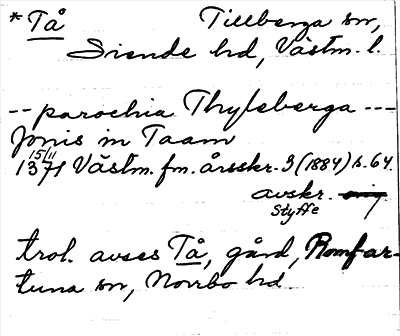 * Tå Tillberga sn,
Siende hd, Västm. l.
-- parochia Thyleberga ---
Jonis in Taam
15/11
1371 Västm. fm. årsskr. 3 (1884) s. 64
avskr.
Styffe
trol. avses Tå, gård, Romfar-
tuna sn, Norrbo hd.